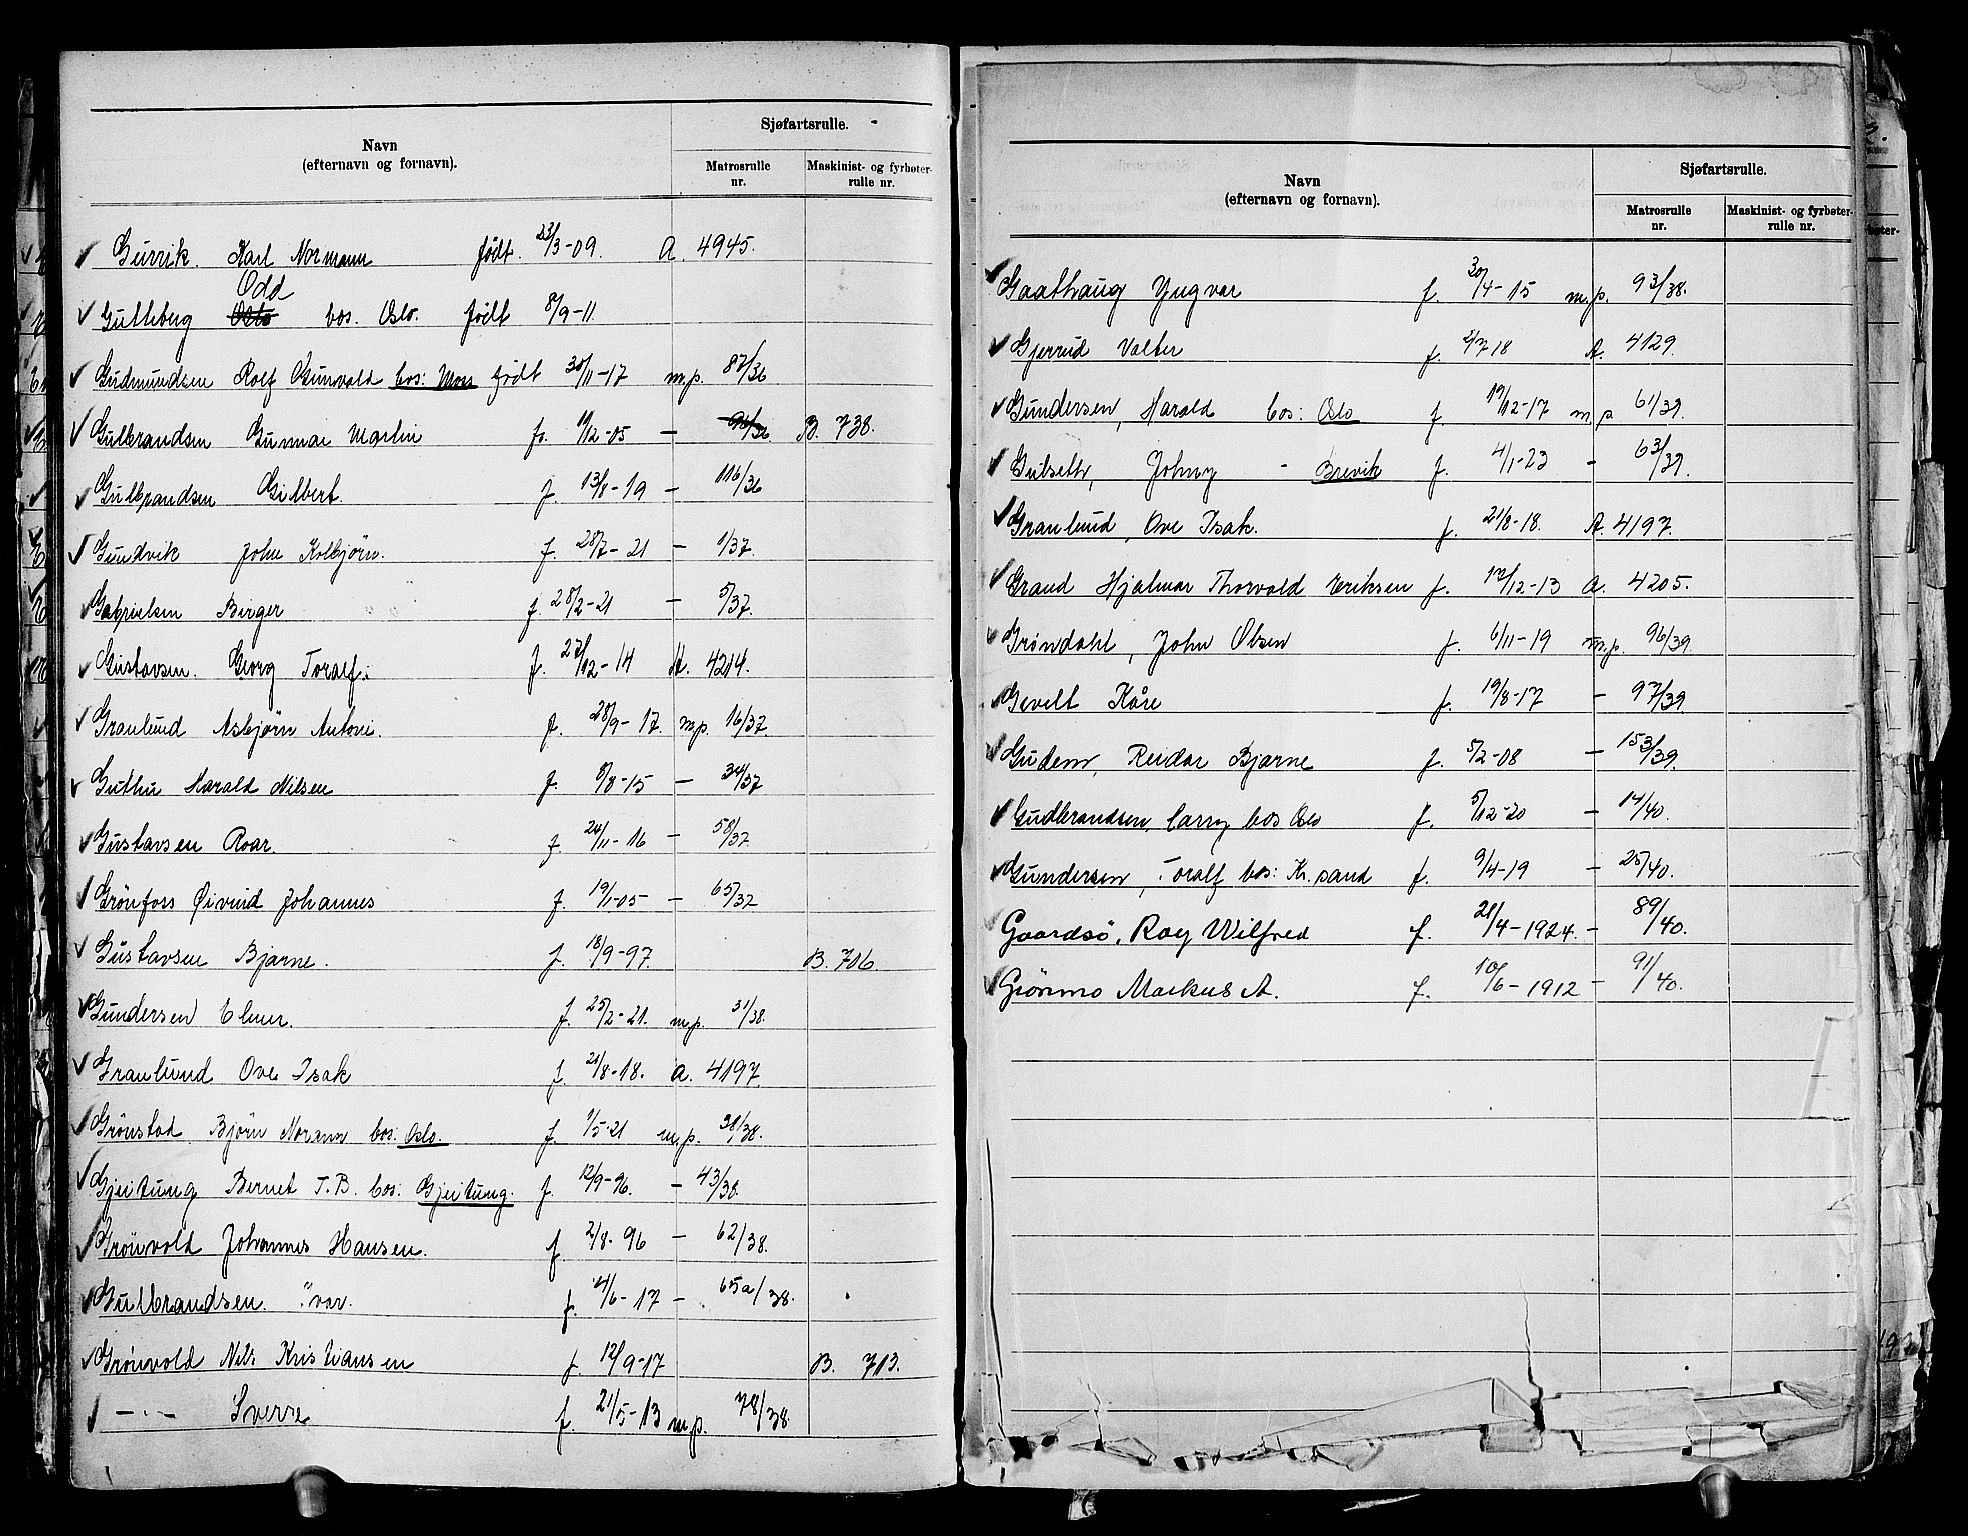 Navn
(efternavn og fornavn).
Sjøfartsrulle.
Matrosrulle nr.
Maskinist- og fyrbøter-rulle nr.
Gurrik. Karl Normann født. 23/3-09. A. 4945.
Odd
Gulleberg Oslo bos. Oslo. født 8/9-11
Gudmundsen Rolf Gunvald bos: Moss født 30/11-17 m.p. 87/36
Gulbrandsen Gunnar Martin f. 11/12-05 — 94/36 B. 738.
Gulbrandsen Gilbert f. 13/8-19 — 116/36
Gundvik John Kolbjørn. f. 28/7-21 — 1/37.
Gabrielsen Birger f. 28/2-21 — 5/37.
Gustavsen. Georg Toralf. f. 27/12-14 A. 4214.
Granlund Asbjørn Antoni. f. 28/9-17. m.p. 16/37.
Guthu Harald Nilsen f. 8/8-15 — 34/37
Gustavsen Roar. f. 24/11-16 — 58/37
Grönfoss Øivind Johannes f. 19/1-05 — 65/37
Gustavsen Bjarne. f. 18/9-97. B. 706.
Gundersen Elmer. f. 25/2-21. m.p. 31/38.
Granlund Ove Isak f. 21/8-18. A. 4197.
Grönstad Bjørn Normann bos: Oslo. f. 1/5-21 m.p. 38/38.
Gjeitung Bernet T.B. bos: Gjeitung. f. 12/9-96. — 43/38.
Grönvold Johannes Hansen. f. 2/8-96 — 62/38.
Gulbrandsen. Ivar. f. 4/6-17 — 65a/38.
Grönvold Nils Kristiansen f. 12/9-17 B. 713.
— " — Sverre f. 21/5-13 m.p. 78/38.
Navn
(efternavn og fornavn).
Sjøfartsrulle.
Matrosrulle nr.
Maskinist- og fyrbøter-rulle nr.
Gaathaug Yngvar f. 30/4-15 m.p. 93/38.
Gjerrud Valter f. 2/7 18 A. 4129.
Gundersen, Harald bos: Oslo f. 17/12-17 m.p 61/39.
Gulseth, Johny - Brevik f. 4/1-23 - 63/39.
Granlund, Ove Isak. f. 21/8-18. A. 4197.
Grand Hjalmar Thorvald Eriksen f. 12/12-13 A. 4205.
Grøndahl, John Olsen f. 6/11-19 m.p. 96/39.
Gevelt Kåre f. 19/8-17 - 97/39
Gudem, Reidar Bjarne f. 5/2-08 - 153/39.
Gudbrandsen, Carry bos Oslo f. 5/12-20 - 14/40.
Gundersen, Toralf bos: Kr.sand f. 9/4-19 - 25/40.
Gaardsö, Roy Wilfred f. 21/4-1924. - 89/40.
Grönmo Markus A. f. 10/6-1912 - 91/40.